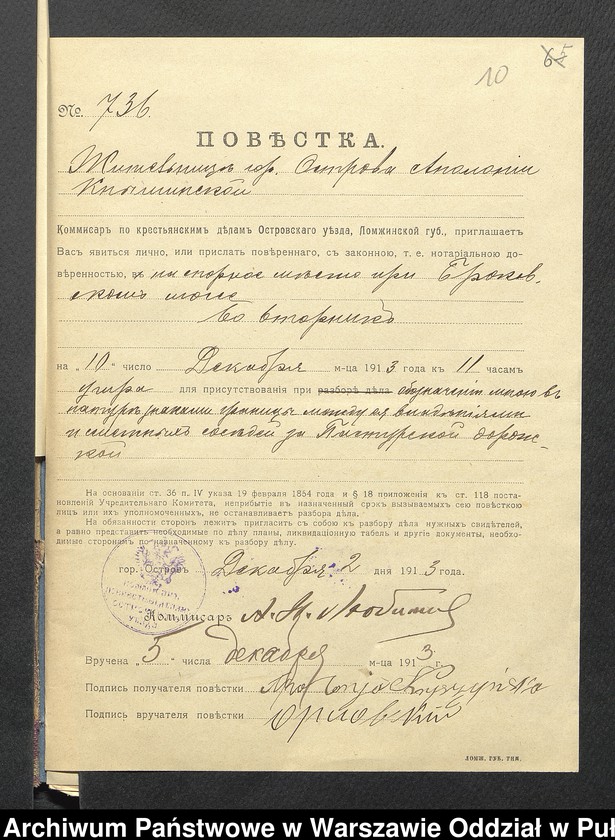 10
65
№ 736.
ПОВѢСТКА.
Жительницѣ гор. Острова Аполоніи
Кнышинской
Комисаръ по крестьянским дѣлам Островскаго уѣзда, Ломжинской губ., приглашаетъ
Васъ явиться лично, или прислать повѣреннаго, съ законною, т. е. нотаріальною до-
вѣренностью, на спорное мѣсто при Броков-
скомъ
во вторникъ
на „10“ число Декабря м-ца 1913 года къ 11 часамъ
утра для присутствованія при разборѣ дѣла обозначеніи мною въ
натурѣ знаками границы между ея владѣніями
и смежныхъ сосѣдей за дорож-
кой
На основаніи ст. 36 п. IV указа 19 февраля 1864 года и § 18 приложенія къ ст. 118 поста-
новленій Учредительнаго Комитета, неприбытіе въ назначенный срокъ вызываемыхъ сею повѣсткою
лицъ или ихъ уполномоченныхъ, не останавливаетъ разбора дѣла.
На обязанности сторонъ лежитъ пригласить съ собою къ разбору дѣла нужныхъ свидѣтелей,
а равно представить необходимые по дѣлу планы, ликвидаціонную табель и другіе документы, необхо-
димые сторонамъ по назначенному къ разбору дѣлу.
гор. Островъ Декабря 2 дня 1913 года.
Коммисаръ А. Любимовъ
Вручена „3“ числа декабря м-ца 1913 г.
Подпись получателя повѣстки Apolonja Knyszyńska
Подпись вручателя повѣстки Орловскій
ЛОМЖ. ГУБ. ТИП.
Archiwum Państwowe w Warszawie Oddział w Puł